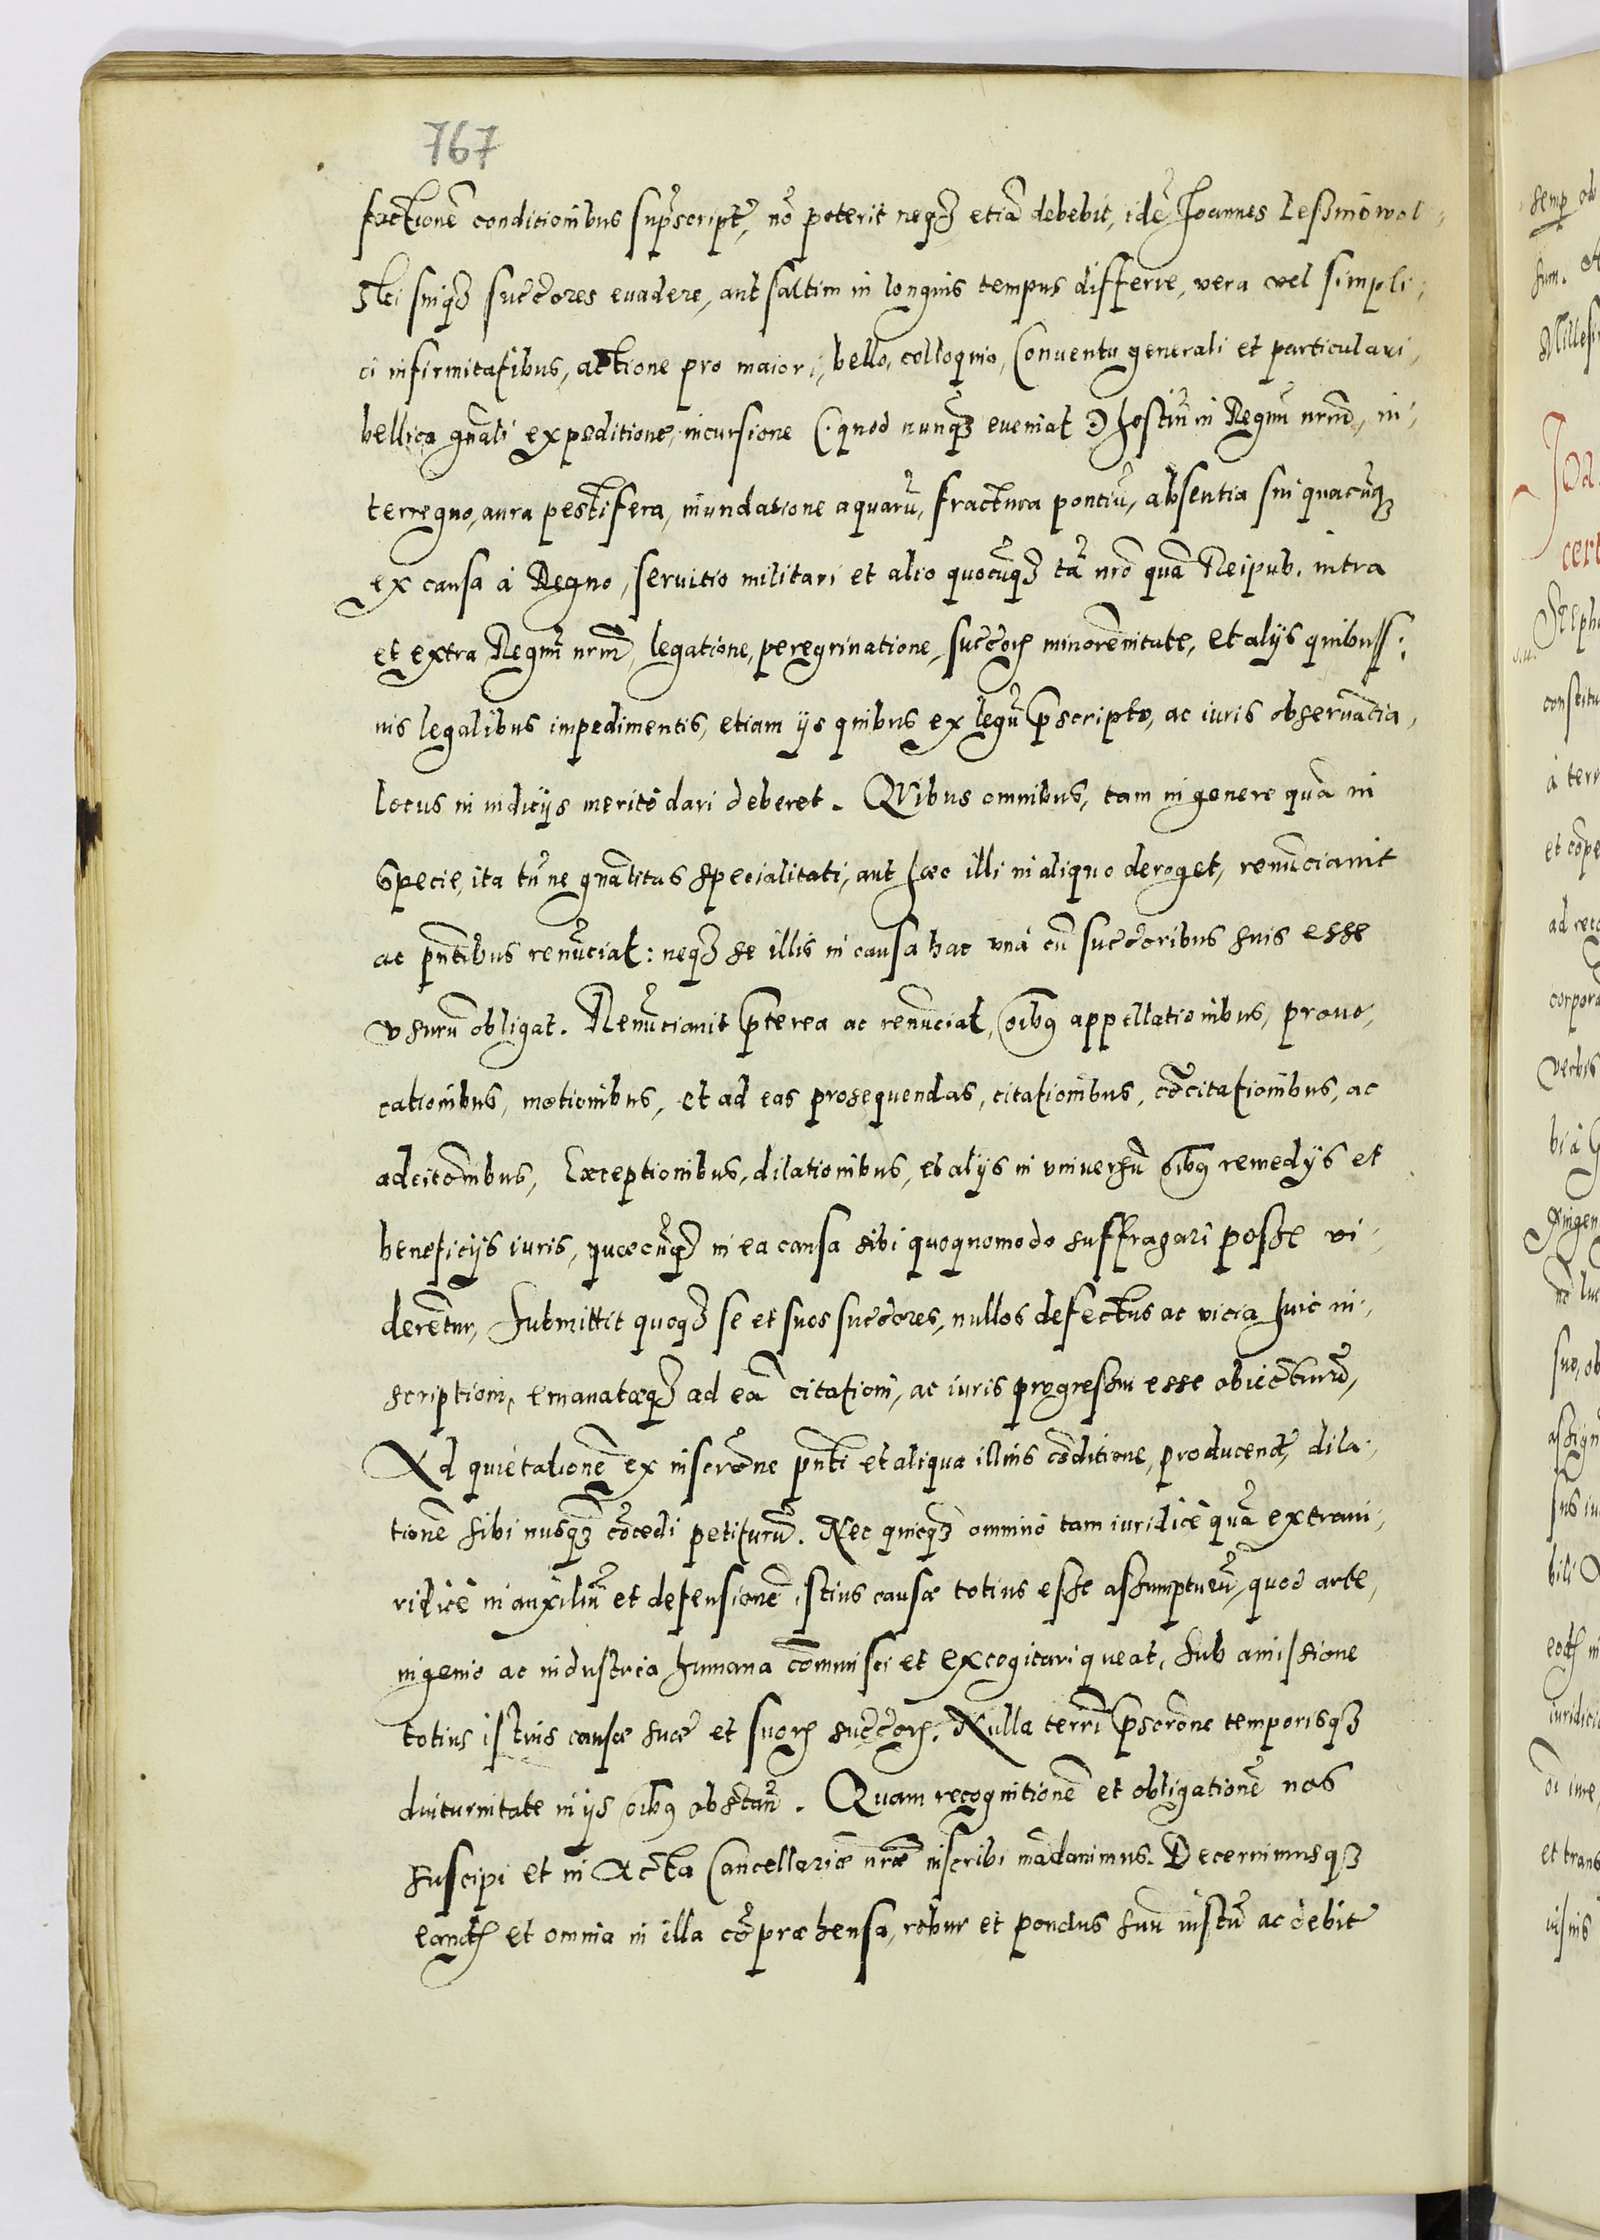 767
factionē conditionibus suprascript, nō poterit neqȝ etiā debebit, idē Joannes Lesniowol-
ski suiqȝ succores euadere, aut saltim in longius tempus differre, vera vel simpli-
ci infirmitatibus, actione pro maiori, bello, colloquio, Conuentu generali et particulari,
bellica gnāli expeditione, incursione (: quod nunqȝ eueniat :) hostiū in Regnū nrm̄, in-
terregno, aura pestifera, inundatione aquarū, fractura pontiū, absentia sui quacūqȝ
ex causa à Regno, seruitio militari et alio quocūqȝ tā nrō quā Reipub. intra
et extra Regnū nrm̄, legatione, peregrinatione, succoꝝ minorennitate, et alijs quibuss-
uis legalibus impedimentis, etiam ijs quibus ex legū pscripto, ac iuris obseruātia,
locus in iudicijs meritò dari deberet. Quibus omnibus, tam in genere quā in
specie, ita tn̄ ne gnālitas specialitati, aut haec illi in aliquo deroget, renūciauit
ac pn̄tibus renūciat: neqȝ se illis in causa hac vnà cū succoribus suis esse
vsurū obligat. Renūciauit pterea ac renūciat, oībꝰ appellationibus, prouo-
cationibus, motionibus, et ad eas prosequendas, citationibus, cōcitationibus, ac
adcitōnibus, Exceptionibus, dilationibus, et alijs in vniuersū oībꝰ remedijs et
beneficijs iuris, quaecūqȝ in ea causa sibi quoquomodo suffragari posse vi-
derētur, Submittit quoqȝ se et suos succores, nullos defectus ac vicia huic in-
scriptioni, emanataeqȝ ad eā citationi, ac iuris progressui esse obiecturū,
Ad quietationē ex inscrōne pn̄ti et aliqua illius cōditione, producend, dila-
tionē sibi nusqȝ cōcedi petiturū. Nec quicqȝ omninò tam iuridicè quā extraiu-
ridicè in auxiliū et defensionē istius causae totius esse assumpturū, quod arte,
ingenio ac industria humana cōminisci et excogitari queat, sub amissione
totius istius causae suae et suoꝝ succoꝝ. Nulla terrī pscrōne temporisqȝ
diuturnitate in ijs oībꝰ obstan̄. Quam recognitionē et obligationē nos
suscipi et in Acta Cancellariae nrae inscribi mādauimus. Decernimusqȝ
eandꝫ et omnia in illa cōpraehensa, robur et pondus suū iustū ac debit